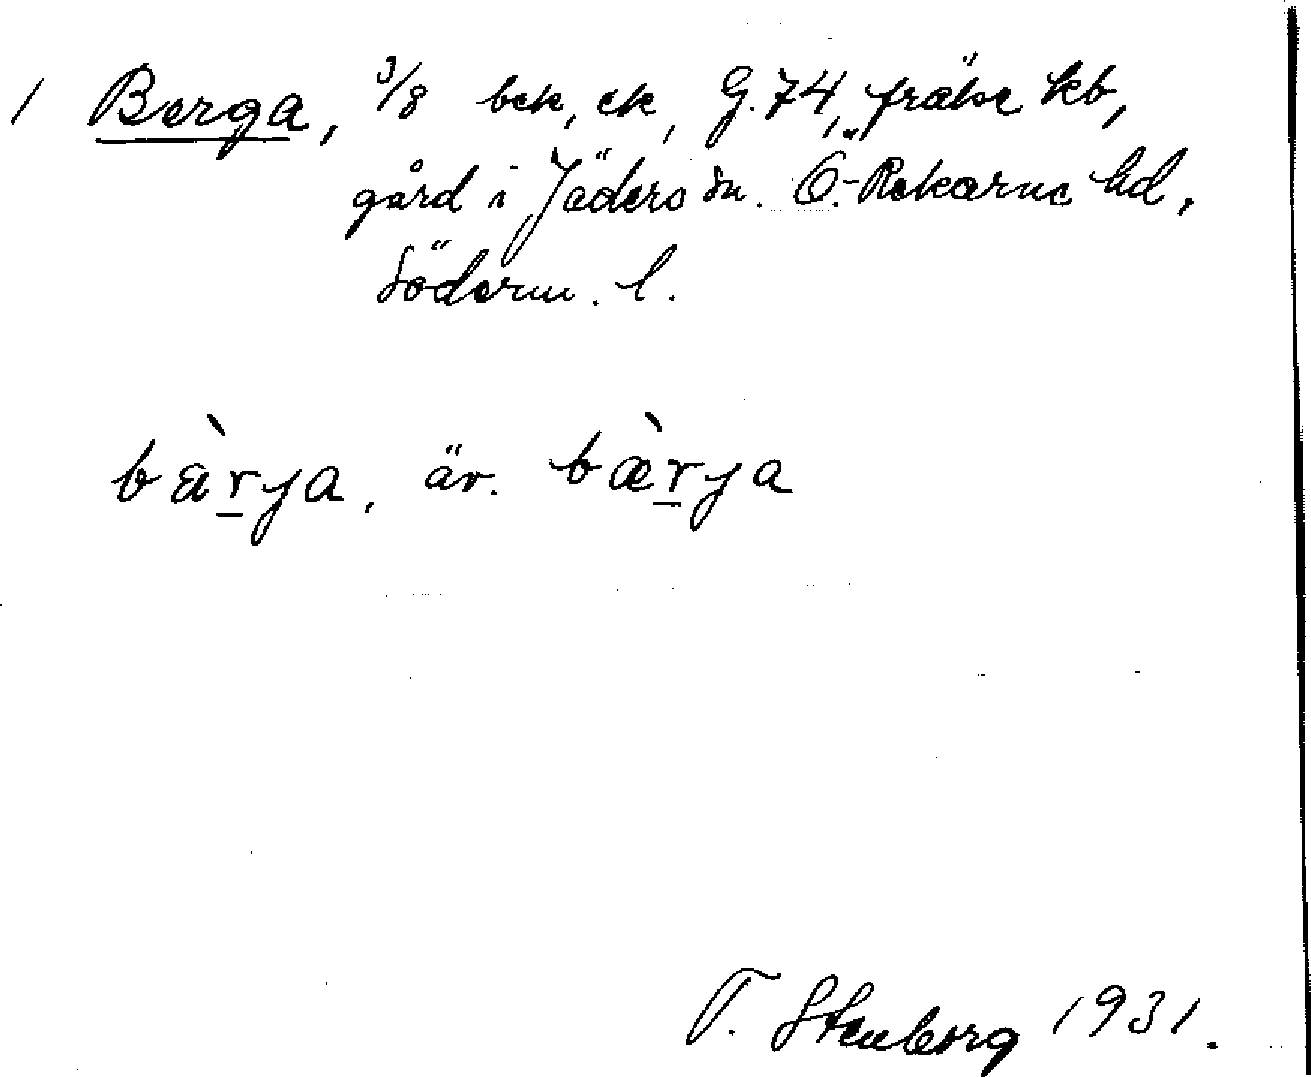 1 Berga, 3/8 bek, ek, G. 74, frälse kb,
gård i Jäders sn. Ö.-Rekarne hd,
Söderm. l.
bàr̲ja, är. bæ̀r̲ja
T. Stenberg 1931.